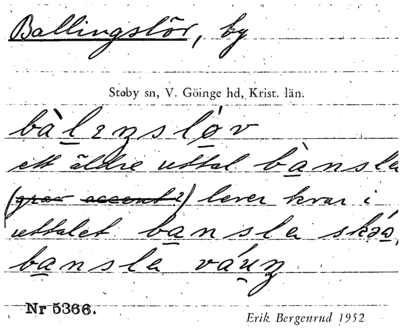 Ballingslöv, by
Stoby sn, V. Göinge hd, Krist. län.
bàlıŋsløv
ett äldre uttal bànsle
(grav accent?) lever kvar i
uttalet bansle
bansle
Nr 5366. Erik Bergenrud 1952